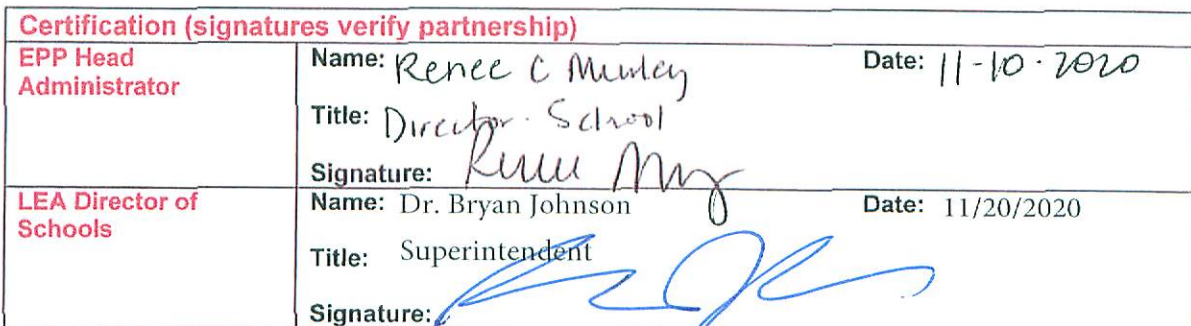 Certification (signatures verify partnership)
EPP Head Administrator
Name: Renee C Murley Date: 11-10-2020
Title: Director - School
Signature:
LEA Director of Schools
Name: Dr. Bryan Johnson Date: 11/20/2020
Title: Superintendent
Signature: